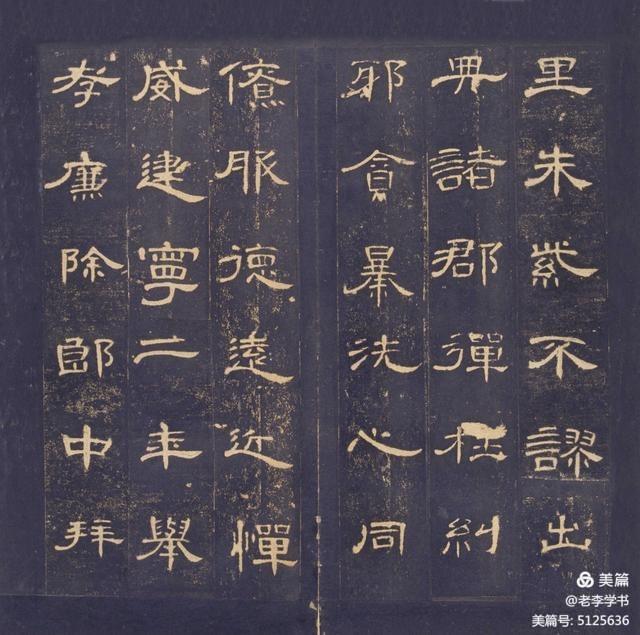 里朱紫不謬出
典諸郡彈枉糾
邪貪暴洗心同
僚服德遠近憚
威建寧二年舉
孝廉除郎中拜
美篇
@老李学书
美篇号: 5125636